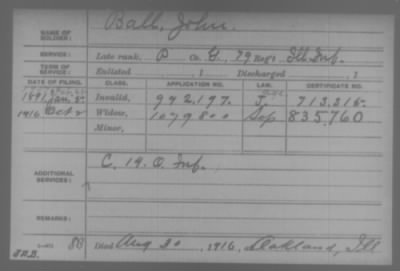 NAME OF SOLDIER: Ball, John.
SERVICE: Late rank, P Co. G, 79 Reg't Ill. Inf.
TERM OF SERVICE: Enlisted , 1 Discharged , 1
DATE OF FILING. CLASS. APPLICATION NO. LAW. CERTIFICATE NO.
1891 Jan. Invalid, 992.197. J. 713.215.
1916 Oct 2 Widow, 1079800 Sep 835.760
Minor,
ADDITIONAL SERVICES: C. 19. O. Inf.
REMARKS:
Died Aug 20, 1916, Oakland, Ill